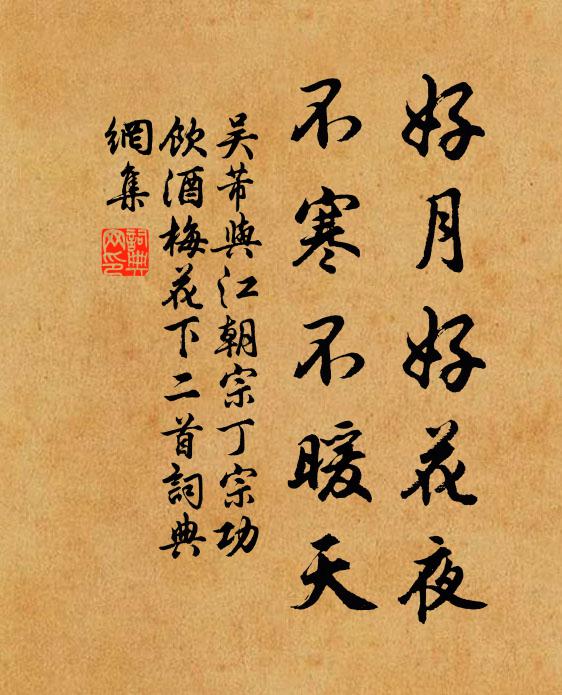 好月好花夜
不寒不暖天
吴芾與江朝宗丁宗功
飲酒梅花下二首詞典
網集
詞典
网印